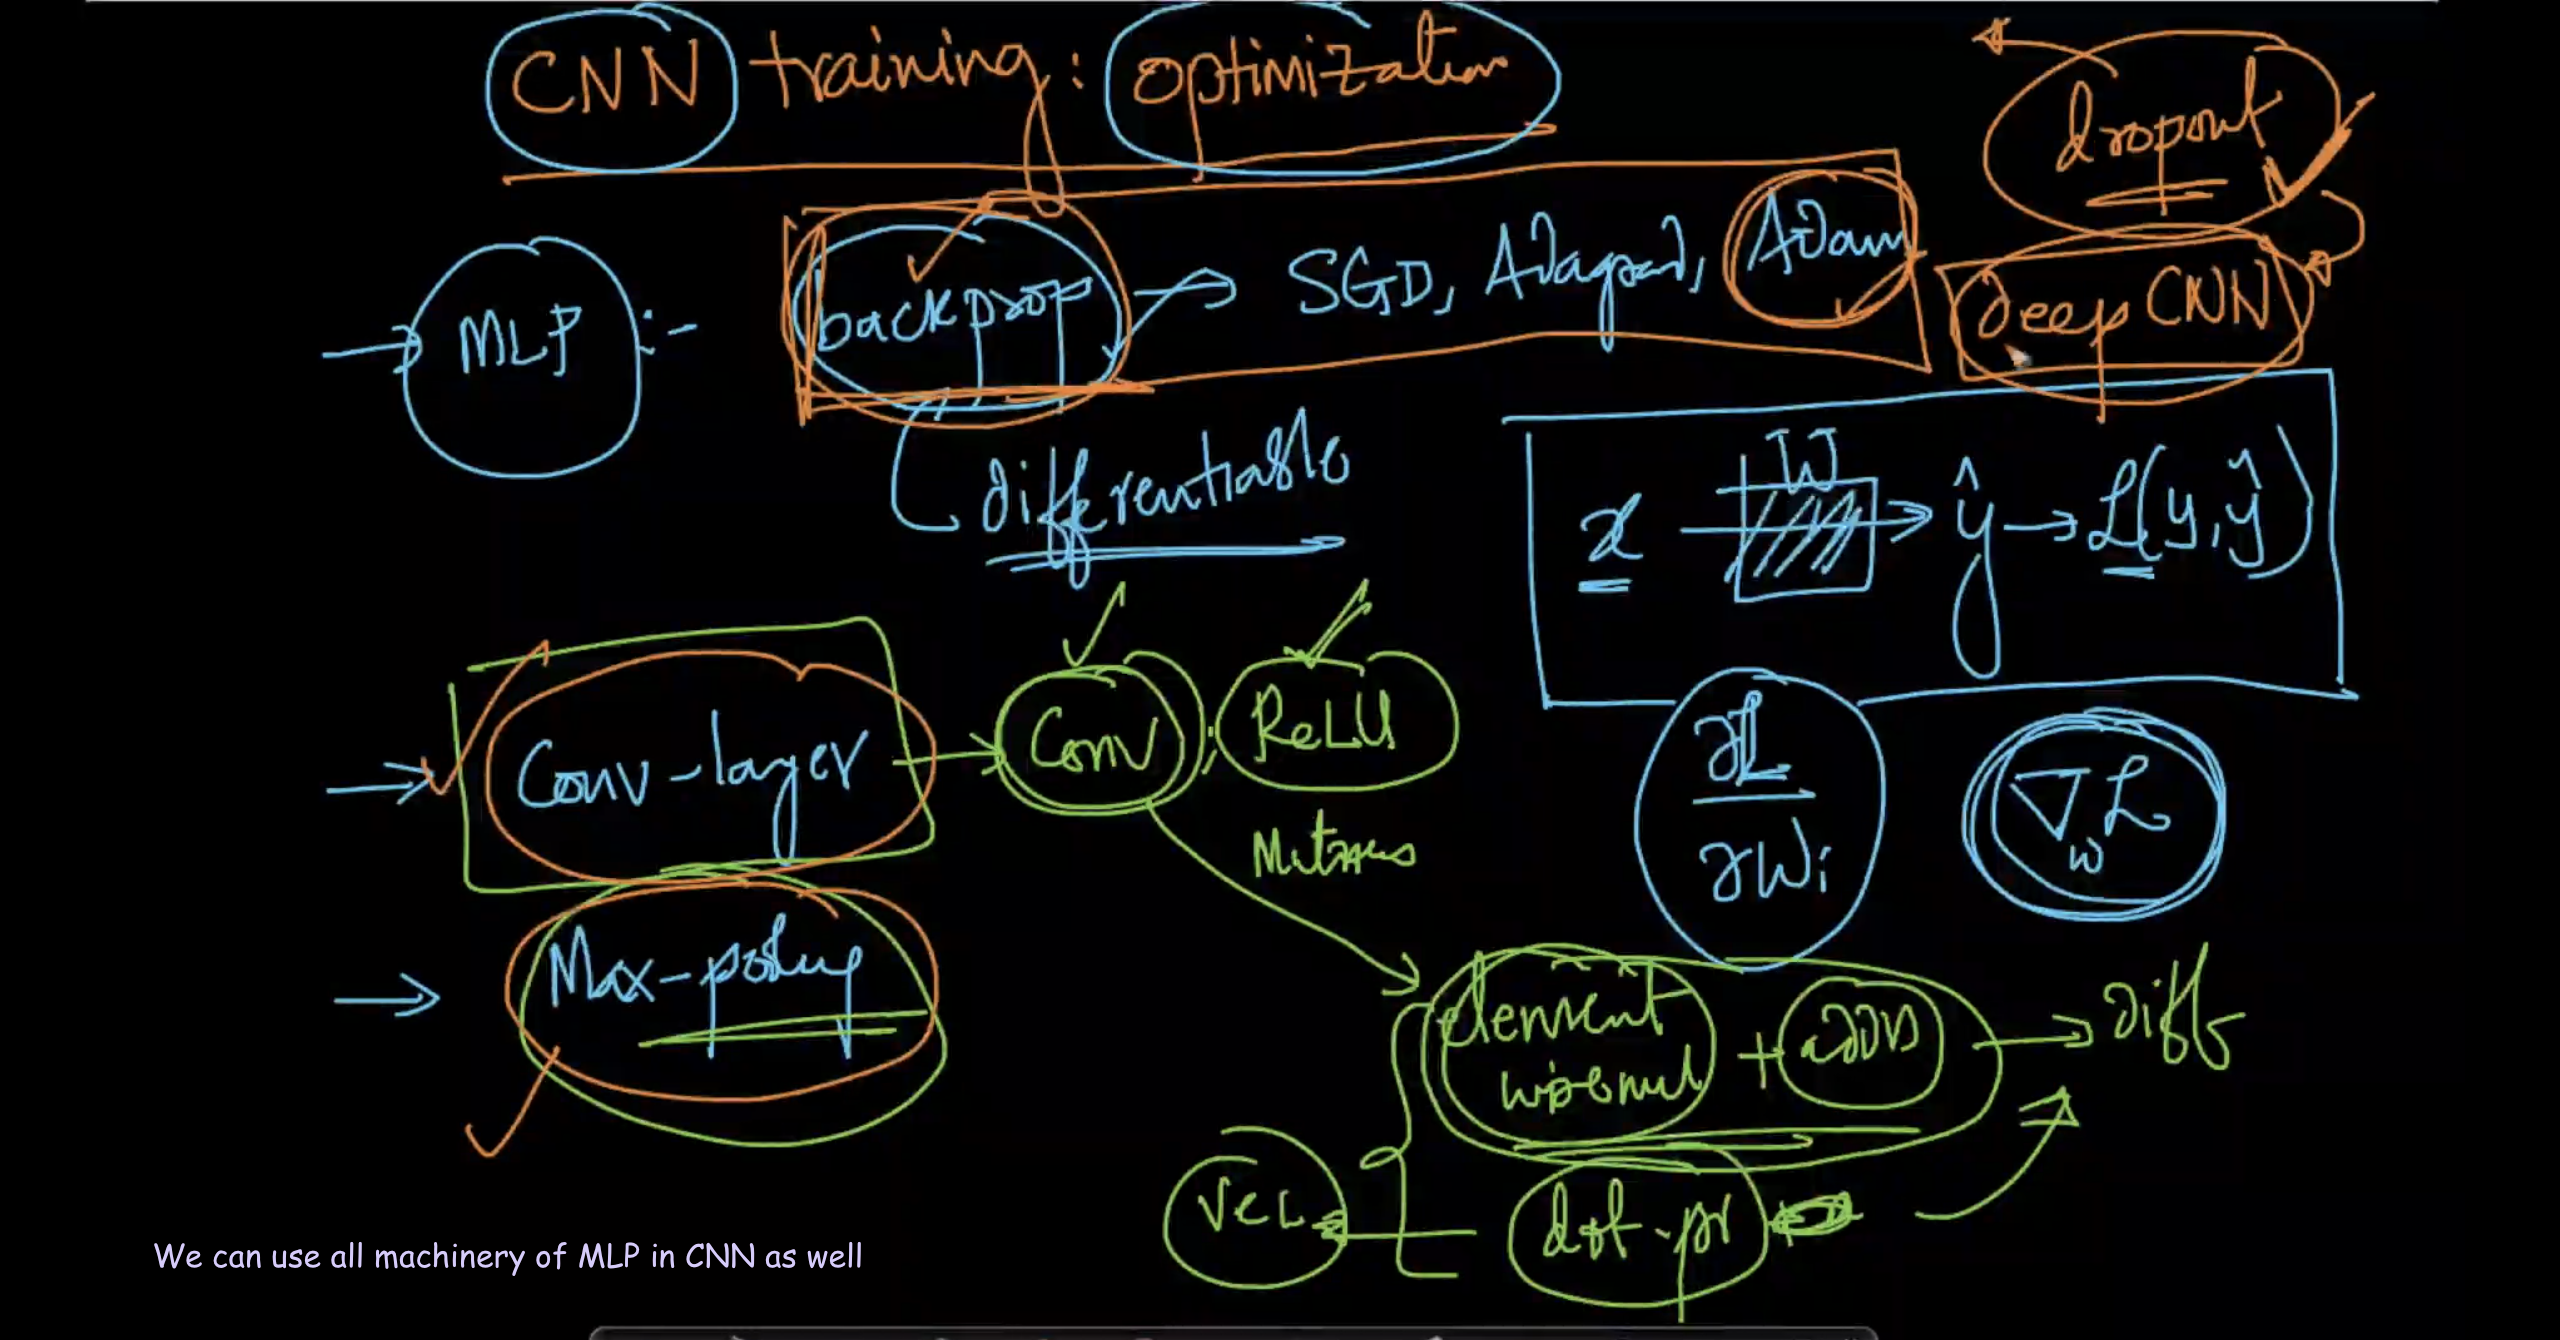 CNN training: optimization
dropout
MLP :- backprop → SGD, Adagrad, Adam
deep CNN
differentiable
x → W → ŷ → L(y, ŷ)
Conv-layer → Conv ; ReLU
∂L/∂Wi
∇w L
Max-pooling
element wise mul + adds → diff
vec ← dot-pr
We can use all machinery of MLP in CNN as well